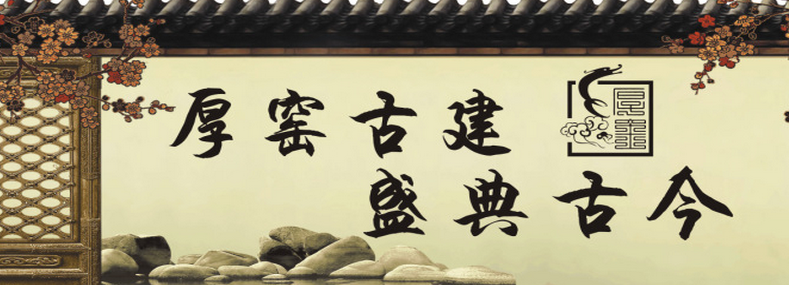 厚窑古建
盛典古今